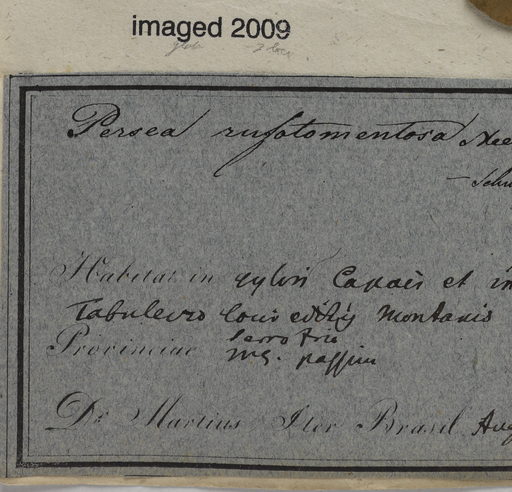 imaged 2009
Persea rufotomentosa Nee
Habitat in sylvis Capões et in
Tabuleiro locis editis montanis
Serro Frio
Provinciae M.G. passim
Dr Martius Iter Brasil. Aug